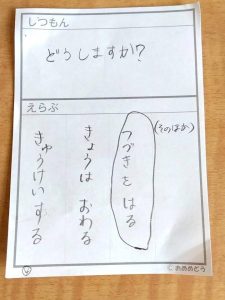 しつもん
どうしますか？
えらぶ
(そのほか)
つづきをはる
きょうは おわる
きゅうけいする
© おめめどう